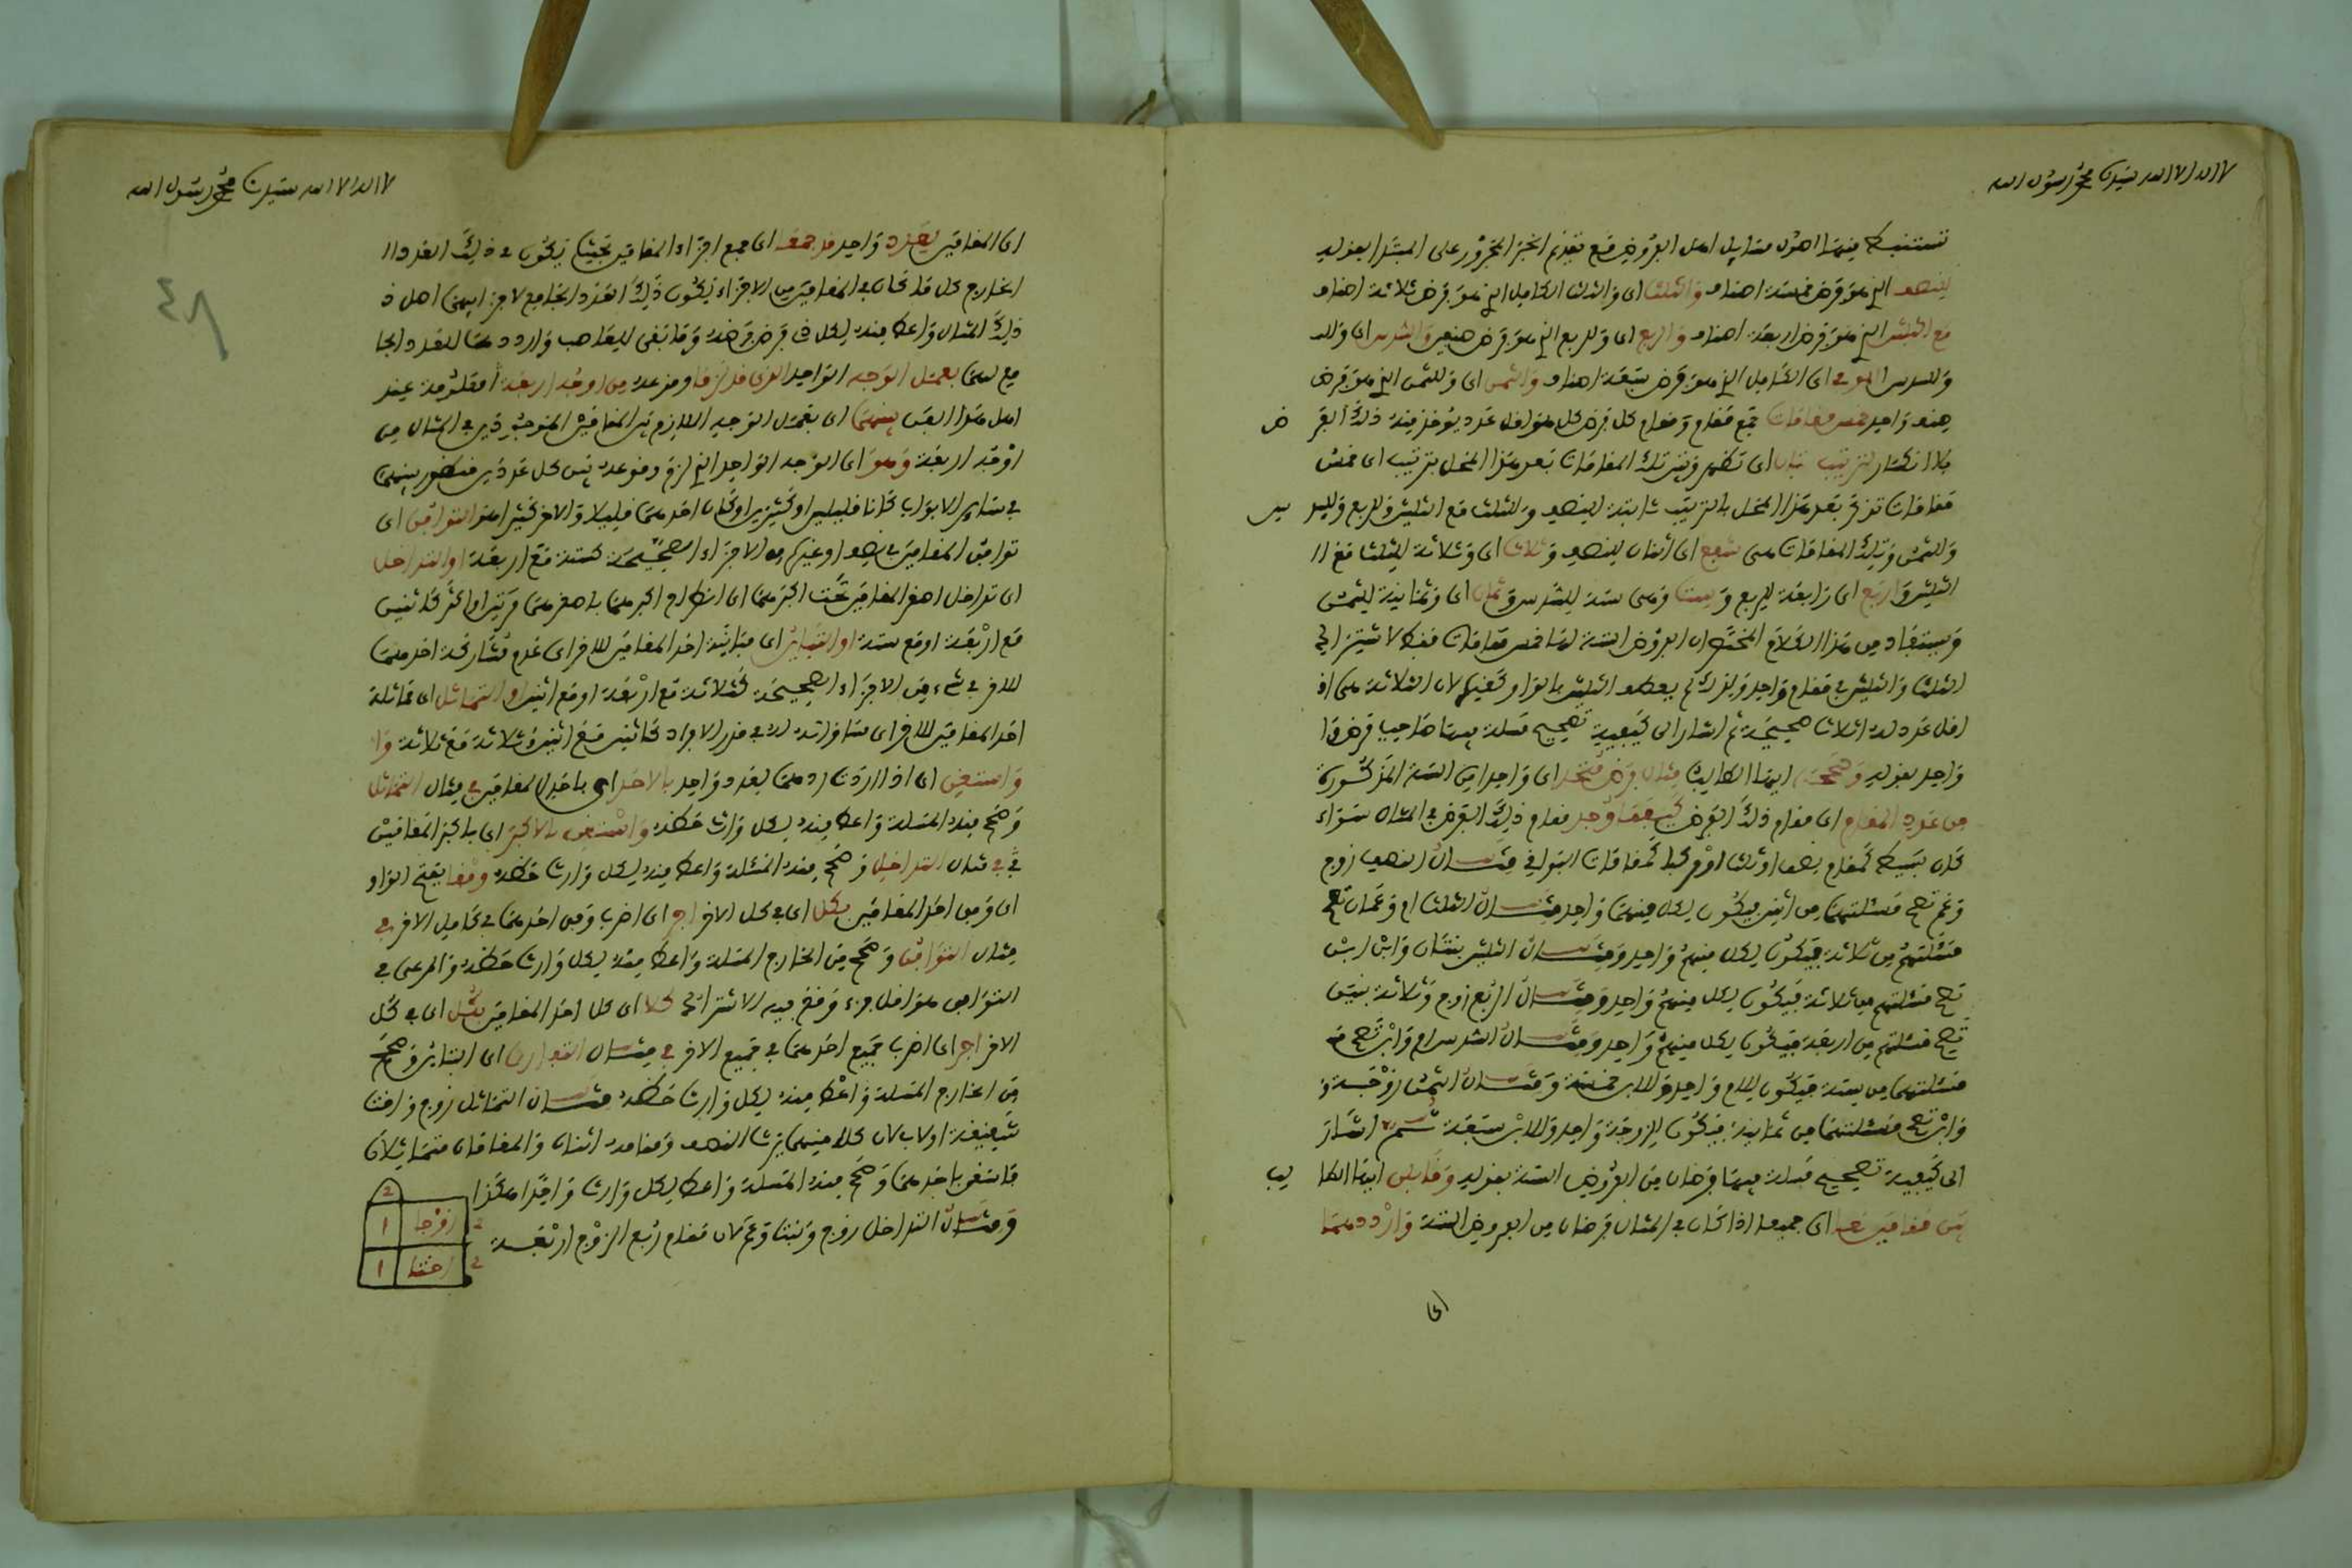 لا اله الا الله سيدنا محمد رسول الله
تستنبط منها اصول مسايل اهل الفروض مع تقديم الخبر المجرور على المبتدا بقوله
للنصف الذي هو فرض خمسة اصناف والثلث اى وللثلث الكامل الذي هو فرض ثلاثة اصناف
مع الثلثين الذي هو فرض اربعة اصناف والربع اى وللربع الذي هو فرض صنفين والسدس اى وللـ
وللسدس اى الكامل الذي هو فرض سبعة اصناف والثمن اى وللثمن الذي هو فرض
صنف واحد خمس مقامات جمع مقام ومقام كل فرض كل هو اقل عدد يؤخذ منه ذلك الفر ض
بلا انكسار لترتيب تبان اى تظهر وتترك المقامات بعد هذا المحل بترتيب اى خمس
مقامات تذكر بعد هذا المحل بالترتيب ثابتة للنصف وللثلث مع الثلثين وللربع وللسد س
وللثمن وتلك المقامات هى شفع اى اثنان للنصف وثلاث اى وثلاثة للثلث مع ا
الثلثين واربع اى واربعة للربع وست وهى ستة للسدس وثمان اى وثمانية للثمن
ويستفاد من هذا الكلام ان الفروض الستة لها خمس مقامات فقط لاشتراك
الثلث والثلثين في مقام واحد ولذلك لم يعطف الثلثين بالواو كغيرهما لان الثلاثة هى اقـ
اقل عدد له اثلاث صحيحة ثم اشار الى كيفية تصحيح مسئلة فيها صاحب فرض وا
واحد بقوله وصححن ايها الطالب مثال فرض متحد اى واحد من الستة المذكورة
من عدد المقام اى مقام ذلك الفرض كيفما وجد مقام ذلك الفرض في المثال سواء
كان بسيط كمقام نصف او ثلث او مركبا كمقامات البواقي مثال النصف زوج
وعم تصح مسئلتهما من اثنين فيكون لكل منهما واحد ومثال الثلث ام وعمان تصح
مسئلتهم من ثلاثة فيكون لكل منهم واحد ومثال الثلثين بنتان وابن ابن
تصح مسئلتهم من ثلاثة فيكون لكل منهم واحد ومثال الربع زوج وثلاثة بنين
تصح مسئلتهم من اربعة فيكون لكل منهم واحد ومثال السدس ام وابن تصح مـ
مسئلتهما من ستة فيكون للام واحد وللابن خمسة ومثال الثمن زوجة و
وابن تصح مسئلتهما من ثمانية فيكون للزوجة واحد وللابن سبعة ثم اشار
الى كيفية تصحيح مسئلة فيها فرضان من الفروض الستة بقوله وقابلن ايها الطا لب
بين مقامين معا اى جميعا اذا كان في المثال فرضان من الفروض الستة وارددهما
اى
لا اله الا الله سيدنا محمد رسول الله
اى المقامين لعدد واحد قد جمعه اى جمع اجزاء المقامين بحيث يكون في ذلك العدد ا
الخارج كل ما كان في المقامين من الاجزاء ليكون ذلك العدد الجامع لاجزائهما اصل ذ
ذلك المثال واعط منه لكل ذى فرض فرضه وما بقى للعاصب وارددهما للعدد الجا
مع لهما بعمل الوجه الواحد الذي قد لزما ومزعه من اوجه اربعة معلومة عند
اهل هذا الفن بينهما اى بعمل الوجه اللازم بين المقامين المتوجهين في المثال من
اوجه اربعة وهو اى الوجه الواحد الذي لزم وقوعه بين كل عددين منظور بينهما
في ساير الابواب كانا قليلين او كثيرين او كان احدهما قليلا والاخر كثيرا هو التوافق اى
توافق المقامين في نصف او غيره من الاجزاء الصحيحة كستة مع اربعة او التداخل
اى تداخل اصغر المقامين تحت اكبرهما اى انطراح اكبرهما باصغرهما مرتين او اكثر كاثنين
مع اربعة او مع ستة او التباين اى مباينة احد المقامين للاخر اى عدم مشاركة احدهما
للاخر في شىء من الاجزاء الصحيحة كثلاثة مع اربعة او مع اثنين او التماثل اى مماثلة
احد المقامين للاخر اى مساواته له في قدر الافراد كاثنين مع اثنين وثلاثة مع ثلاثة وا
واستغن اى اذا اردت ردهما لعدد واحد بالاحد اى باحد المقامين في مثال التماثل
وصح منه المسئلة واعط منه لكل وارث حظه واستغن بالاكبر اى باكبر المقامين
في مثال التداخل وصح منه المسئلة واعط منه لكل وارث حظه وفقا بفتح الواو
اى وفق احد المقامين بكل اى في كل الاخر اجر اى اضرب وفق احدهما في كامل الاخر في
مثال التوافق وصح من الخارج المسئلة واعط منه لكل وارث حظه والمرعى في
التوافق هو اقل جزء وقع فيه الاشتراك كلا اى كل احد المقامين بكل اى في كل
الاخر اجر اى اضرب جميع احدهما في جميع الاخر في مثال اى التباين وصحح
من الخارج المسئلة واعط منه لكل وارث حظه مثال التماثل زوج واخت
شقيقة او لاب لان كلا منهما يرث النصف ومقامه اثنان والمقامان متماثلان
فاستغن باحدهما وصح منه المسئلة واعط لكل وارث واحدا هكذا
ومثال التداخل زوج وبنت وعم لان مقام ربع الزوج اربعة
2
2 زوج 1
2 اخت 1